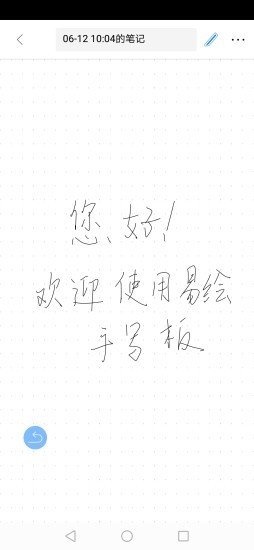 06-12 10:04的笔记
您、好!
欢迎使用易绘
手写板